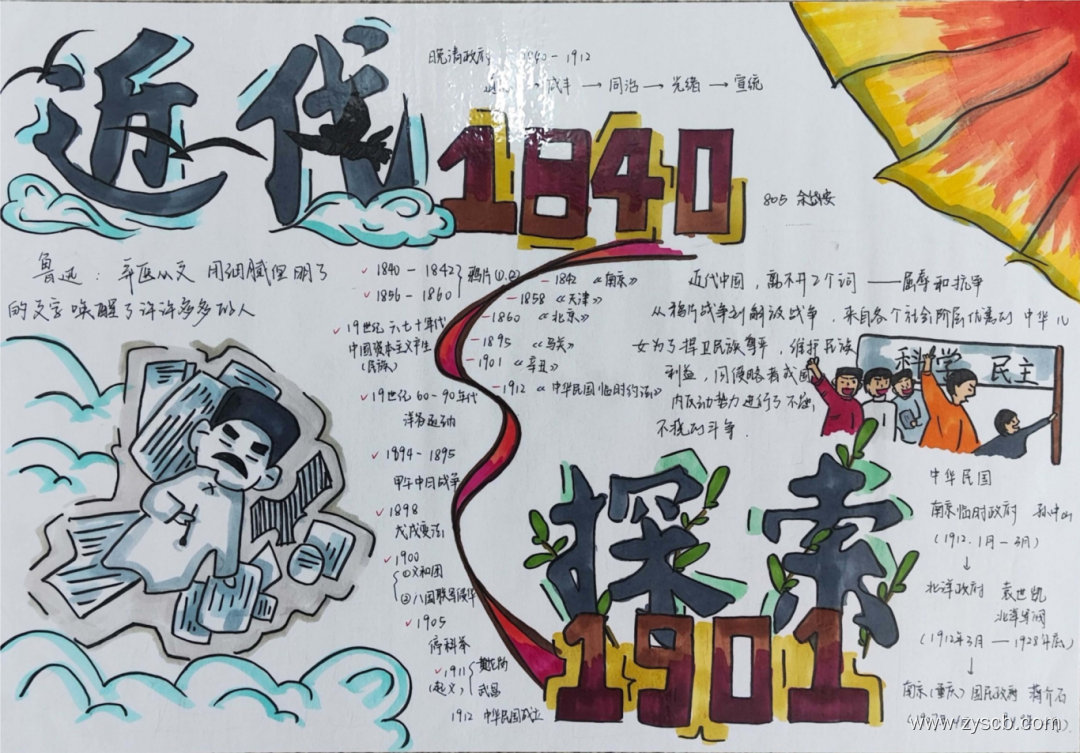 近代
1840
晚清政府 1840-1912
咸丰→同治→光绪→宣统
805
鲁迅：弃医从文 用细腻但明了
的文字唤醒了许许多多的人
✓1840-1842
✓1856-1860
鸦片(1.2)
✓19世纪六、七十年代
中国资本主义产生
(民族)
✓19世纪60-90年代
洋务运动
✓1894-1895
甲午中日战争
✓1898
戊戌变法
✓1900
①义和团
②八国联军侵华
✓1905
停科举
✓1911
(起义)
黄花岗
武昌
1912 中华民国成立
-1842 《南京》
-1858 《天津》
-1860 《北京》
-1895 《马关》
-1901 《辛丑》
-1912 《中华民国临时约法》
近代中国，离不开2个词——屈辱和抗争
从鸦片战争到解放战争，来自各个社会阶层的 中华儿
女为了捍卫民族尊严，维护民族
利益，同侵略者或国
内反动势力进行了不屈
不挠的斗争.
科学 民主
探索
1901
中华民国
南京临时政府 孙中山
(1912.1月-3月)
↓
北洋政府 袁世凯
北洋军阀
(1912年3月——1928年底)
↓
南京(重庆)国民政府 蒋介石
www.zyscb.com